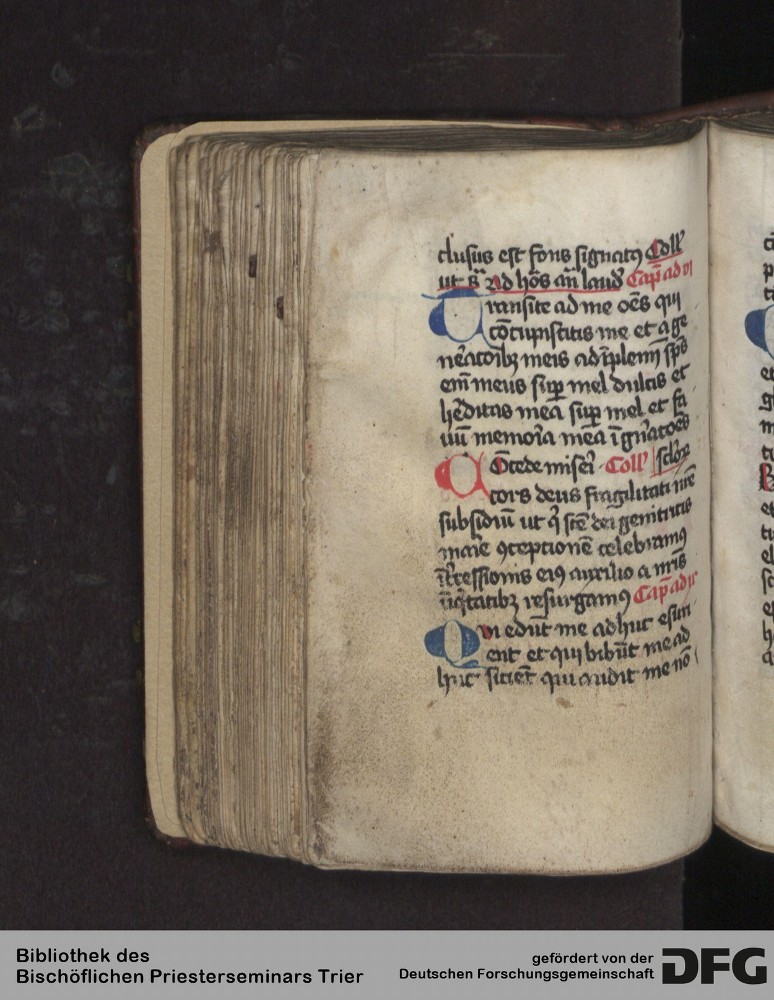 clusus est fons signatꝯ Coll'
ut sᷓ Ad hōs an̄ laud' Cap̄ ad vi
Transite ad me oēs qui
cōcupiscitis me et a ge
neratōibꝫ meis adīplem̄ sp̄s
em̄ meus suꝑ mel dulcis et
h'editas mea suꝑ mel et fa
uū memoria mea ī gn̄atōes
Cōcede miseri Coll' sclōꝝ
cors deus fragilitati nr̄e
subsidiū ut qͥ scē dei genitricis
marie ꝯceptionē celebramꝯ
īt'cessionis eiꝯ auxilio a nr̄is
īiqͥtatibꝫ resurgamꝯ Cap̄ ad
Qui edūt me adhuc esuri
ent et qui bibūt me ad
huc sicient qui audit me nō
Bibliothek des
Bischöflichen Priesterseminars Trier
gefördert von der
Deutschen Forschungsgemeinschaft DFG